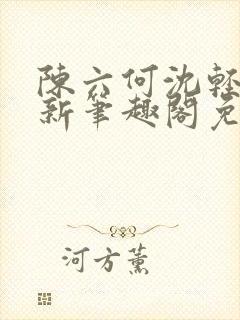 陳六何沈輕
新筆趣閣免
河方薰